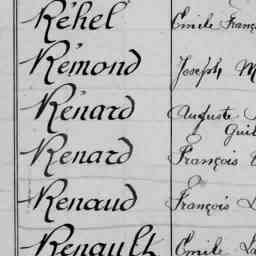 Réhel Emile Franç
Rémond Joseph M
Rénard Auguste
Guil
Renard François
Renaud François L
Renault Emile La